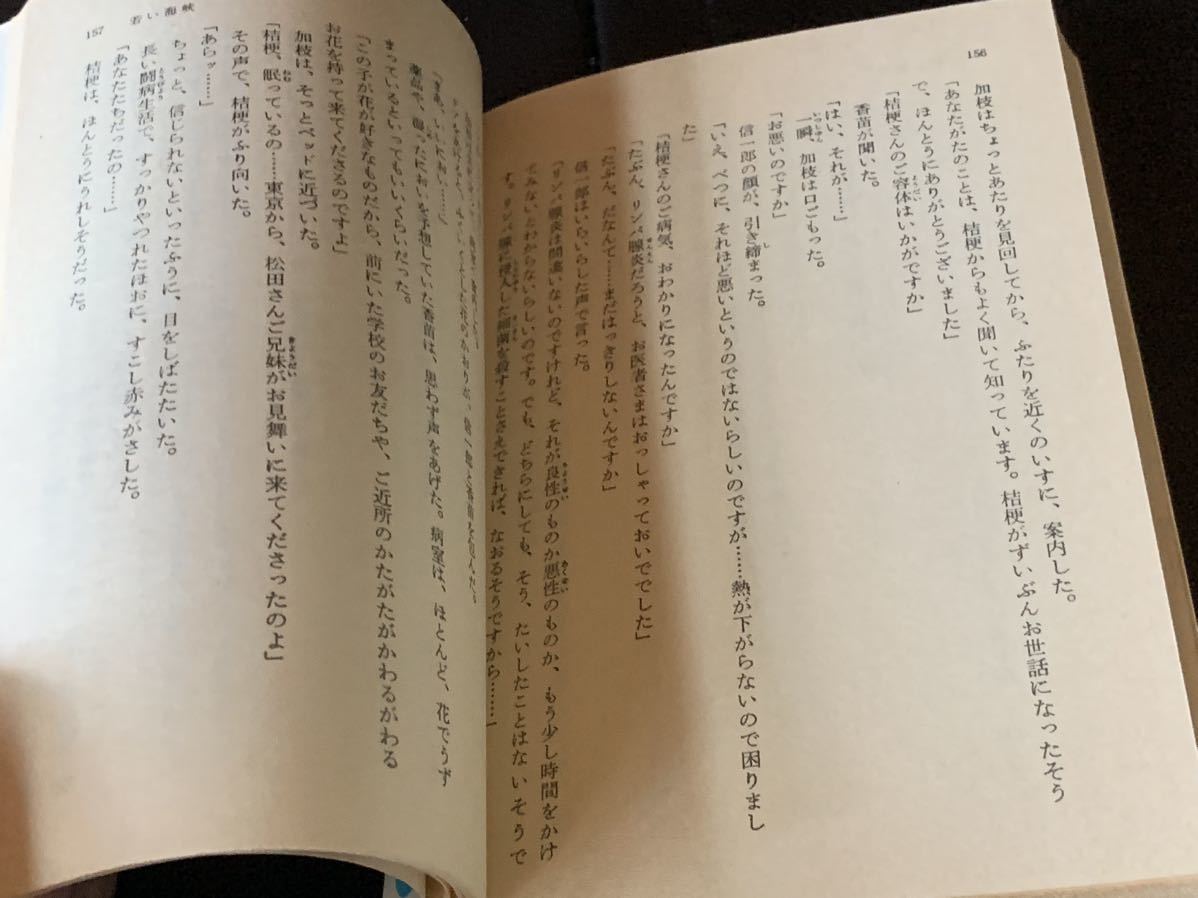 156
加枝はちょっとあたりを見回してから、ふたりを近くのいすに、案内した。
「あなたがたのことは、桔梗からもよく聞いて知っています。桔梗がずいぶんお世話になったそう
で、ほんとうにありがとうございました」
「桔梗さんのご容体はいかがですか」
香苗が聞いた。
「はい、それが……」
一瞬、加枝は口ごもった。
「お悪いのですか」
信一郎の顔が、引き締まった。
「いえ、べつに、それほど悪いというのではないらしいのですが……熱が下がらないので困りまし
た」
「桔梗さんのご病気、おわかりになったんですか」
「たぶん、リンパ腺炎だろうと、お医者さまはおっしゃっておいででした」
「たぶん、だなんて……まだはっきりしないんですか」
信一郎はいらいらした声で言った。
「リンパ腺炎は間違いないのですけれど、それが良性のものか悪性のものか、もう少し時間をかけ
てみないとわからないらしいのです。でも、どちらにしても、そう、たいしたことはないそうで
す。リンパ腺に侵入した細菌を殺すことさえできれば、なおるそうですから……」
157 若い海峡
「まあ、いいにおい……」
薬品や、湿ったにおいを予想していた香苗は、思わず声をあげた。病室は、ほとんど、花でうず
まっているといってもいいくらいだった。
「この子が花が好きなものだから、前にいた学校のお友だちや、ご近所のかたがたがかわるがわる
お花を持って来てくださるのですよ」
加枝は、そっとベッドに近づいた。
「桔梗、眠っているの……東京から、松田さんご兄妹がお見舞いに来てくださったのよ」
その声で、桔梗がふり向いた。
「あらッ……」
ちょっと、信じられないといったふうに、目をしばたたいた。
長い闘病生活で、すっかりやつれたほおに、すこし赤みがさした。
「あなたたちだったの……」
桔梗は、ほんとうにうれしそうだった。